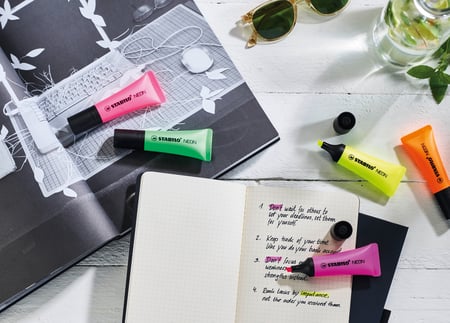 STABILO NEON
STABILO NEON
STABILO NEON
STABILO NEON
STABILO NEON
1. Don't wait for others to
set your deadlines, set them
for yourself.
2. Keep track of your time
like you do your bank account
3. Don't focus on
weaknesses
strengths instead.
4. Rank tasks by importance,
not the order you received them.